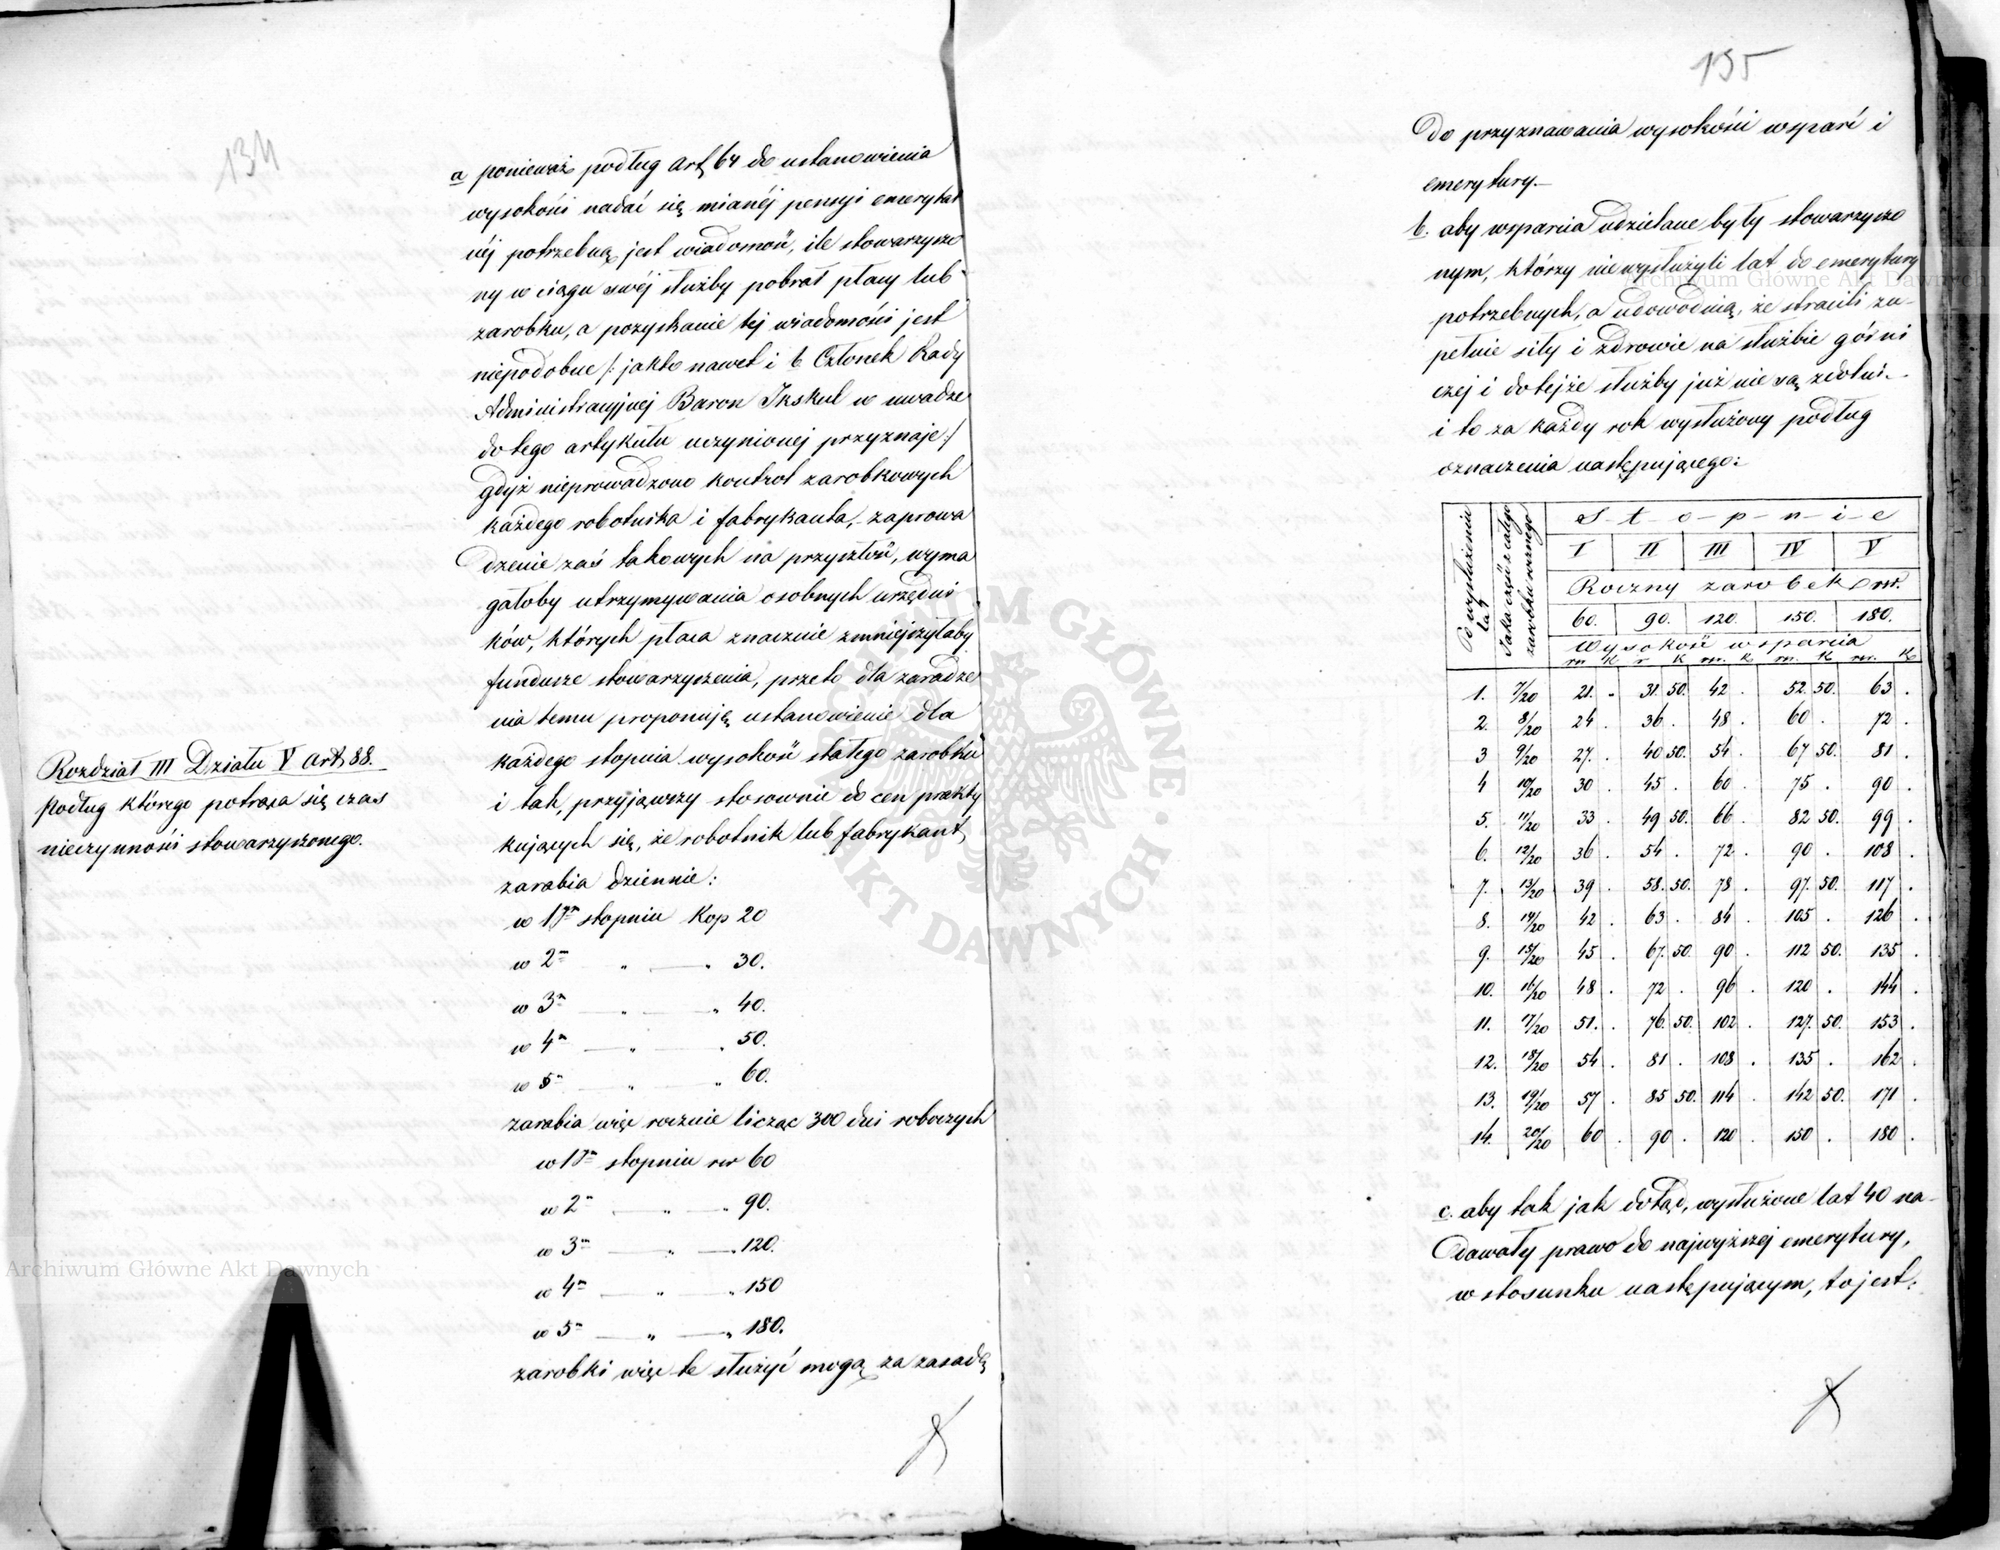 134
a ponieważ podług art 64 do ustanowienia
wysokości nadać się mianéj pensyi emerytal
néj potrzebną jest wiadomość, ile stowarzysze
ny w ciągu swéj służby pobrał płacy lub
zarobku, a pozyskanie tej wiadomości jest
niepodobne /: jak to nawet i b Członek Rady
Administracyjnej Baron Ikskul w uwadze
do tego artykułu uczynionej przyznaje :/
gdyż nieprowadzono kontrol zarobkowych
każdego robotnika i fabrykanta, - zaprowa
dzenie zaś takowych na przyszłość, wyma
gałoby utrzymywania osobnych urzędni
ków, których płaca znacznie zmniejszyłaby
fundusze stowarzyszenia, przeto dla zaradze
nia temu proponują ustanowienie dla
każdego stopnia wysokość stałego zarobku
i tak, przyjąwszy stosownie do cen prakty
kujących się, że robotnik lub fabrykant,
zarabia dziennie:
w 1ym stopniu Kop 20
w 2m " — " 30.
w 3m — " — " 40.
w 4m — " — " 50.
w 5m — " — " 60.
zarabia więc rocznie licząc 300 dni roboczych
w 1ym stopniu rsr 60
w 2m — " — " 90.
w 3m — " — " 120.
w 4m — " — " 150
w 5m — " — " 180.
zarobki więc te służyć mogą za zasadę
Rozdział III Działu V art 88.
podług którego potrąca się czas
nieczynności stowarzyszonego.
135
do przyznawania wysokości wsparć i
emerytury.—
b. aby wsparcia udzielane były stowarzyszo
nym, którzy niewysłużyli lat do emerytury
potrzebnych, a udowodnią, że stracili zu-
pełnie siły i zdrowie na służbie górni
czej i do tejże służby już nie są zdolni. -
i to za każdy rok wysłużony podług
oznaczenia następującego:
Po wysłużeniu lat
Jaka część z całego zarobku rocznego
S-t-o-p-n-i-e
I II III IV V
Roczny zarobek rsr.
60. 90. 120. 150. 180.
Wysokość wsparcia
rsr K r K rsr. K rsr. K rsr. K
1. 7/20 21. . 31. 50. 42 . 52. 50. 63 .
2. 8/20 24 . 36 . 48 . 60 . 72 .
3 9/20 27. . 40 50. 54 . 67 50. 81 .
4 10/20 30 . 45 . 60 . 75 . 90 .
5. 11/20 33 . 49 50. 66 . 82 50. 99 .
6. 12/20 36 . 54 . 72 . 90 . 108 .
7. 13/20 39 . 58. 50. 78 . 97. 50. 117 .
8. 14/20 42 . 63 . 84 . 105 . 126 .
9. 15/20 45 . 67. 50. 90 . 112 50. 135 .
10. 16/20 48 . 72 . 96 . 120 . 144 .
11. 17/20 51. . 76. 50. 102 . 127. 50. 153 .
12. 18/20 54 . 81 . 108 . 135 . 162 .
13. 19/20 57 . 85 50. 114 . 142 50. 171 .
14. 20/20 60 . 90 . 120 . 150 . 180 .
c. aby tak jak dotąd, wysłużone lat 40 na-
dawały prawo do najwyższej emerytury,
w stosunku następującym, to jest:
Archiwum Główne Akt Dawnych
Archiwum Główne Akt Dawnych